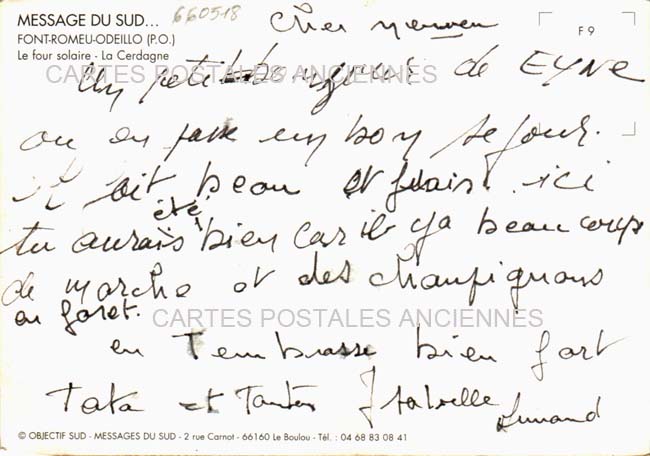 MESSAGE DU SUD...
660518
FONT-ROMEU-ODEILLO (P.O.)
Le four solaire - La Cerdagne
F 9
Cher neveu
CARTES POSTALES ANCIENNES
Un petit de EYNE
ou on passe un bon sejour.
il fait beau et frais. ici
tu aurais été bien car il y a beaucoup
de marche et des champignons
en foret.
CARTES POSTALES ANCIENNES
en T'embrasse bien fort
Tata et Isabelle
© OBJECTIF SUD - MESSAGES DU SUD - 2 rue Carnot - 66160 Le Boulou - Tél. : 04 68 83 08 41